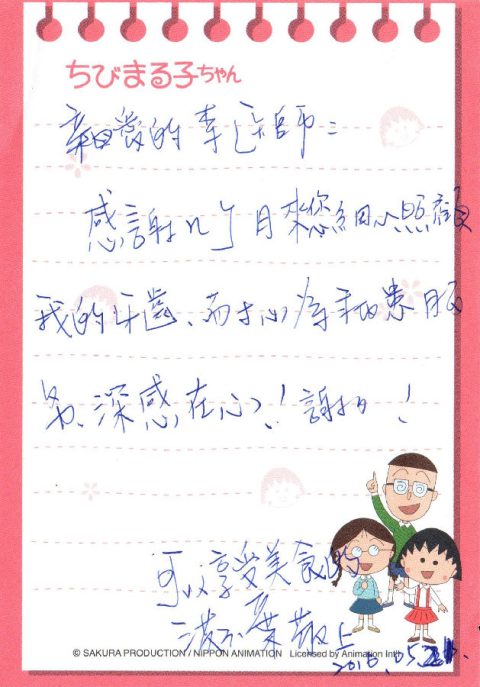 ちびまる子ちゃん
親愛的李醫師:
感謝几個月來您細心照顧
我的牙齒、而才心為病患服
務、深感在心!謝謝!
可以享受美食的
敬上
© SAKURA PRODUCTION / NIPPON ANIMATION Licensed by Animation Int'l
2016.05.